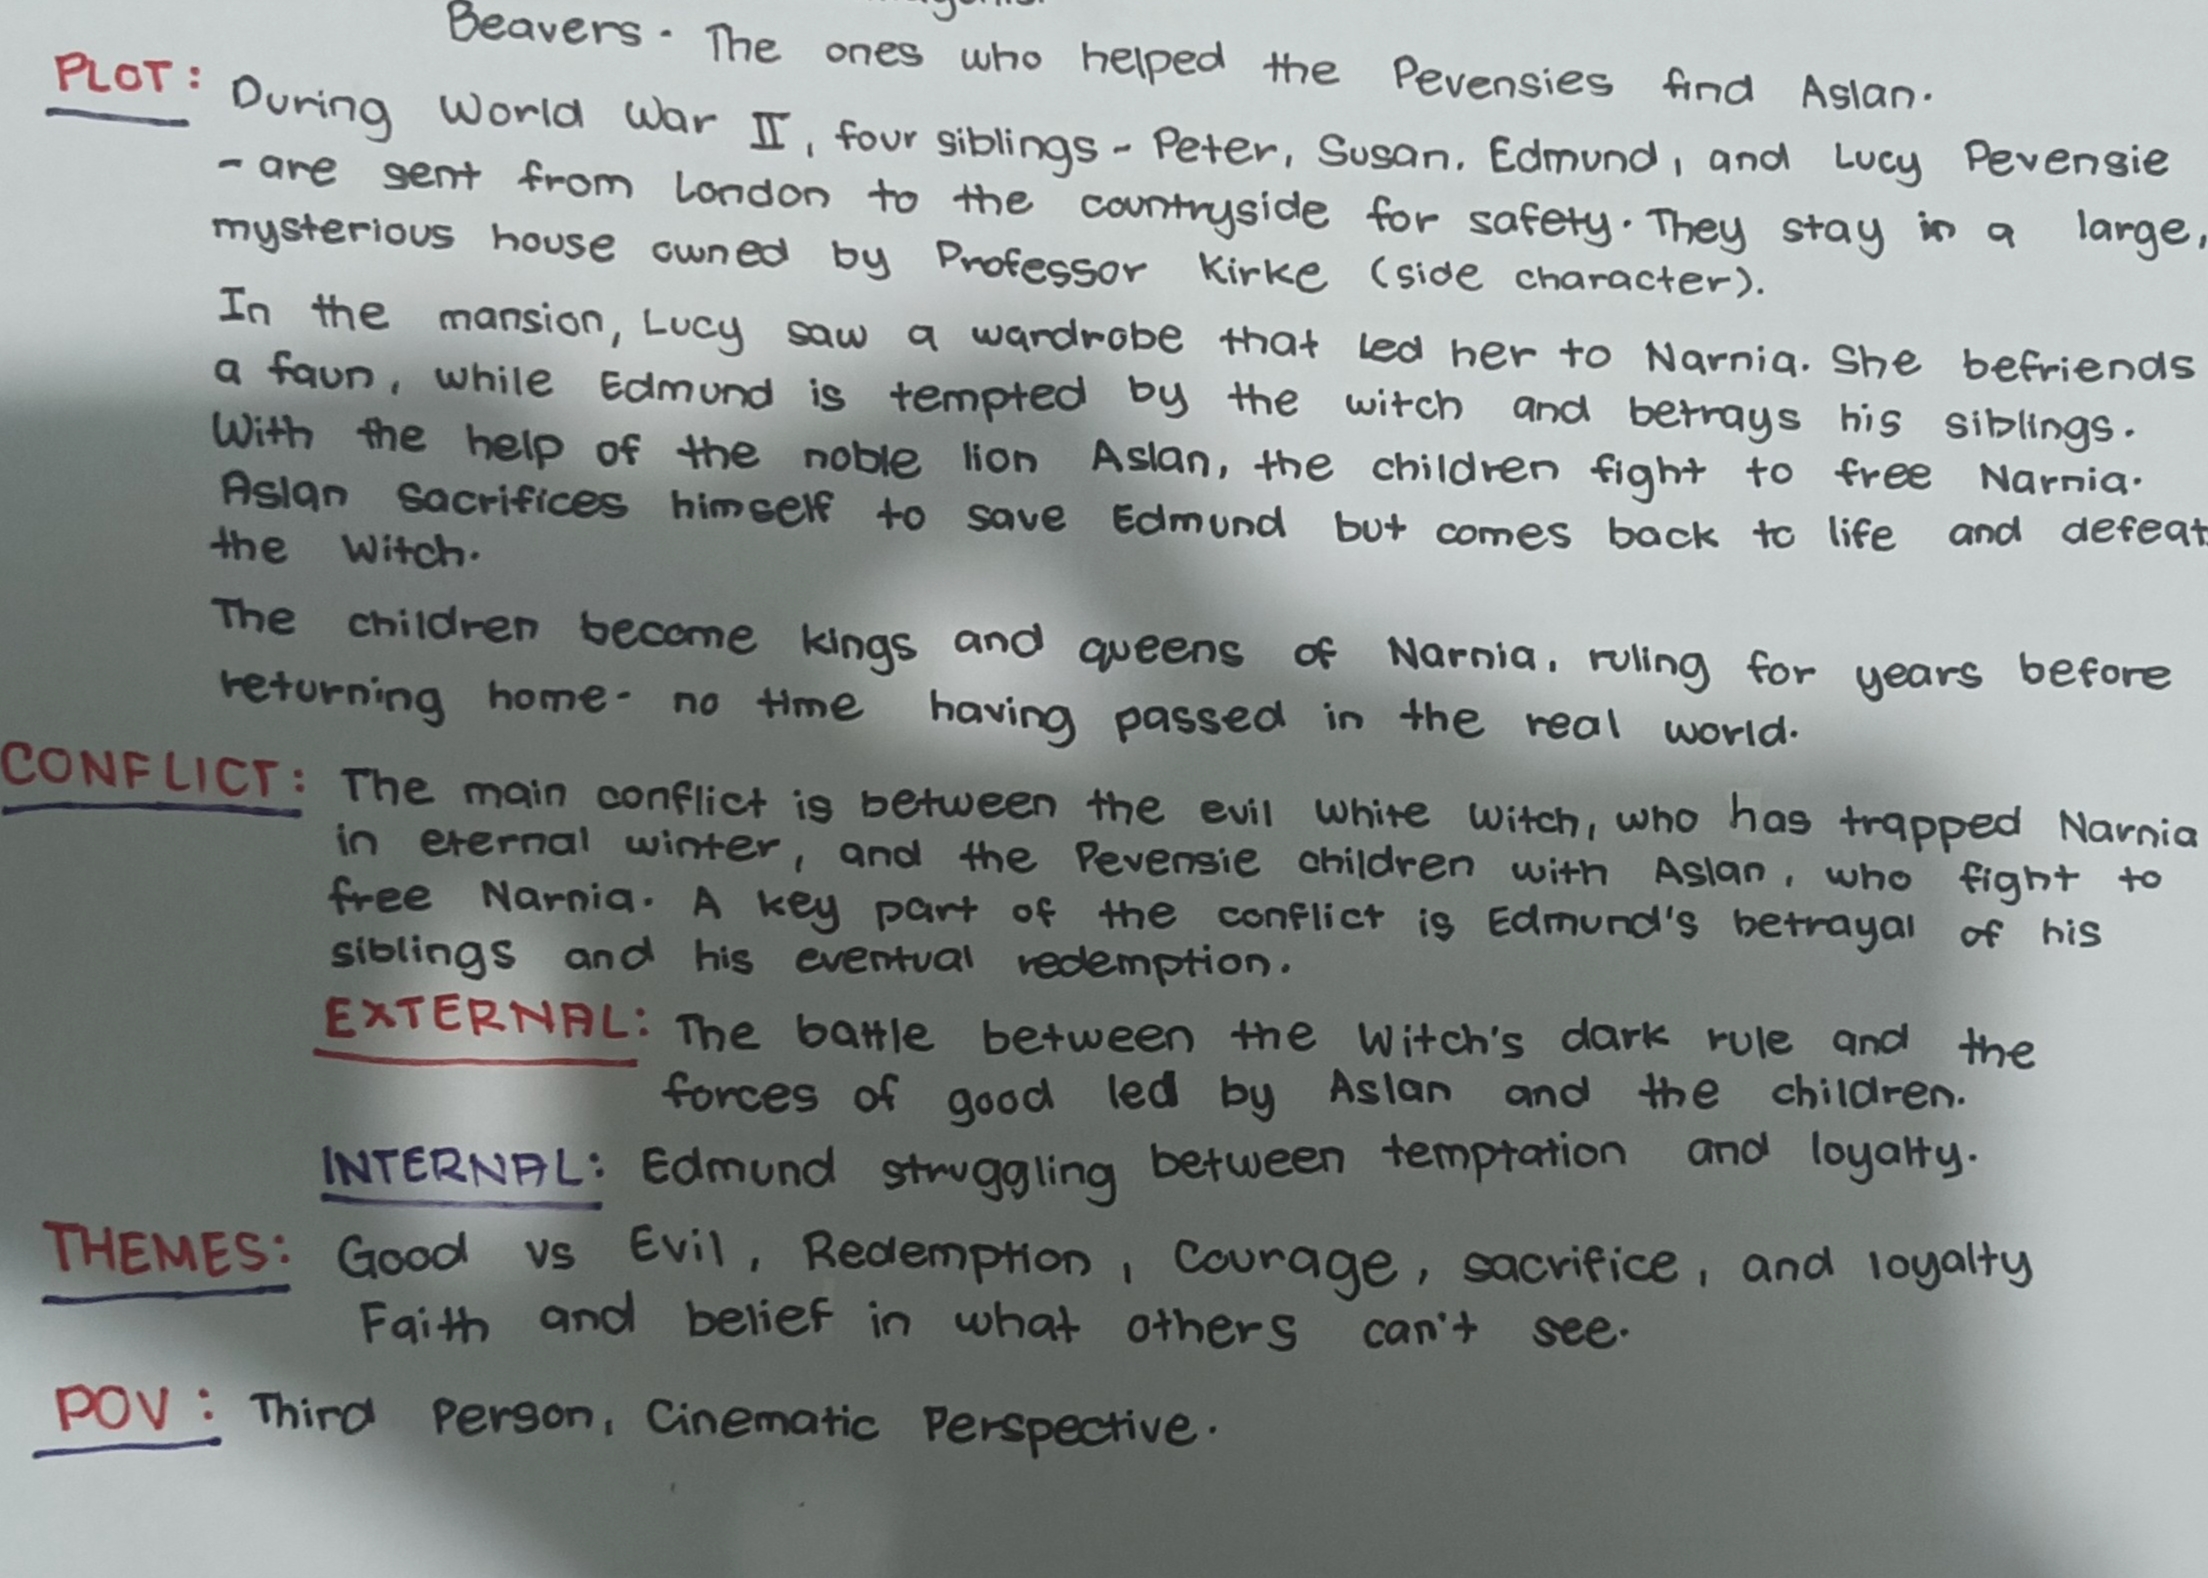 Beavers - The ones who helped the Pevensies find Aslan.
PLOT: During World War II, four siblings - Peter, Susan, Edmund, and Lucy Pevensie
- are sent from London to the countryside for safety. They stay in a large,
mysterious house owned by Professor Kirke (side character).
In the mansion, Lucy saw a wardrobe that led her to Narnia. She befriends
a faun, while Edmund is tempted by the witch and betrays his siblings.
With the help of the noble lion Aslan, the children fight to free Narnia.
Aslan sacrifices himself to save Edmund but comes back to life and defeat
the Witch.
The children become kings and queens of Narnia, ruling for years before
returning home - no time having passed in the real world.
CONFLICT: The main conflict is between the evil White Witch, who has trapped Narnia
in eternal winter, and the Pevensie children with Aslan, who fight to
free Narnia. A key part of the conflict is Edmund's betrayal of his
siblings and his eventual redemption.
EXTERNAL: The battle between the Witch's dark rule and the
forces of good led by Aslan and the children.
INTERNAL: Edmund struggling between temptation and loyalty.
THEMES: Good vs Evil, Redemption, Courage, sacrifice, and loyalty
Faith and belief in what others can't see.
POV: Third Person, Cinematic Perspective.